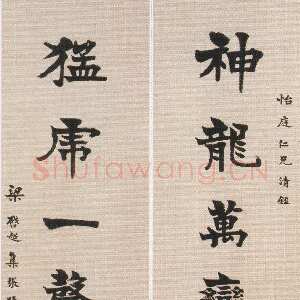 怡庭仁兄清鉴
神龍萬
猛虎一聲
梁啓超集張
Shufawang.CN